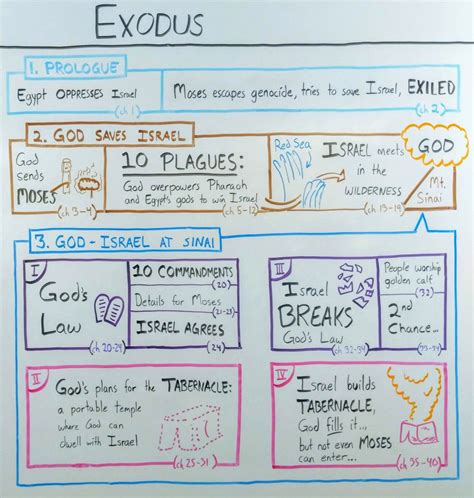 EXODUS
1. PROLOGUE
Egypt OPPRESSES Israel
(ch 1)
Moses escapes genocide, tries to save Israel, EXILED
(ch 2)
2. GOD SAVES ISRAEL
God
sends
MOSES
(ch 3-4)
10 PLAGUES:
God overpowers Pharaoh
and Egypt's gods to win Israel
(ch 5-12)
Red Sea
ISRAEL meets
in the
WILDERNESS
(ch 13-19)
GOD
Mt.
Sinai
3. GOD - ISRAEL AT SINAI
I
God's
Law
(ch 20-24)
10 COMMANDMENTS
(20)
Details for Moses
(21-23)
ISRAEL AGREES
(24)
III
Israel
BREAKS
God's Law
(ch 32-34)
People worship
golden calf
(32)
2nd
Chance...
(33-34)
II
God's plans for the TABERNACLE:
a portable temple
where God can
dwell with Israel
(ch 25-31)
IV
Israel builds
TABERNACLE,
God fills it...
...but not even MOSES
can enter...
(ch 35-40)